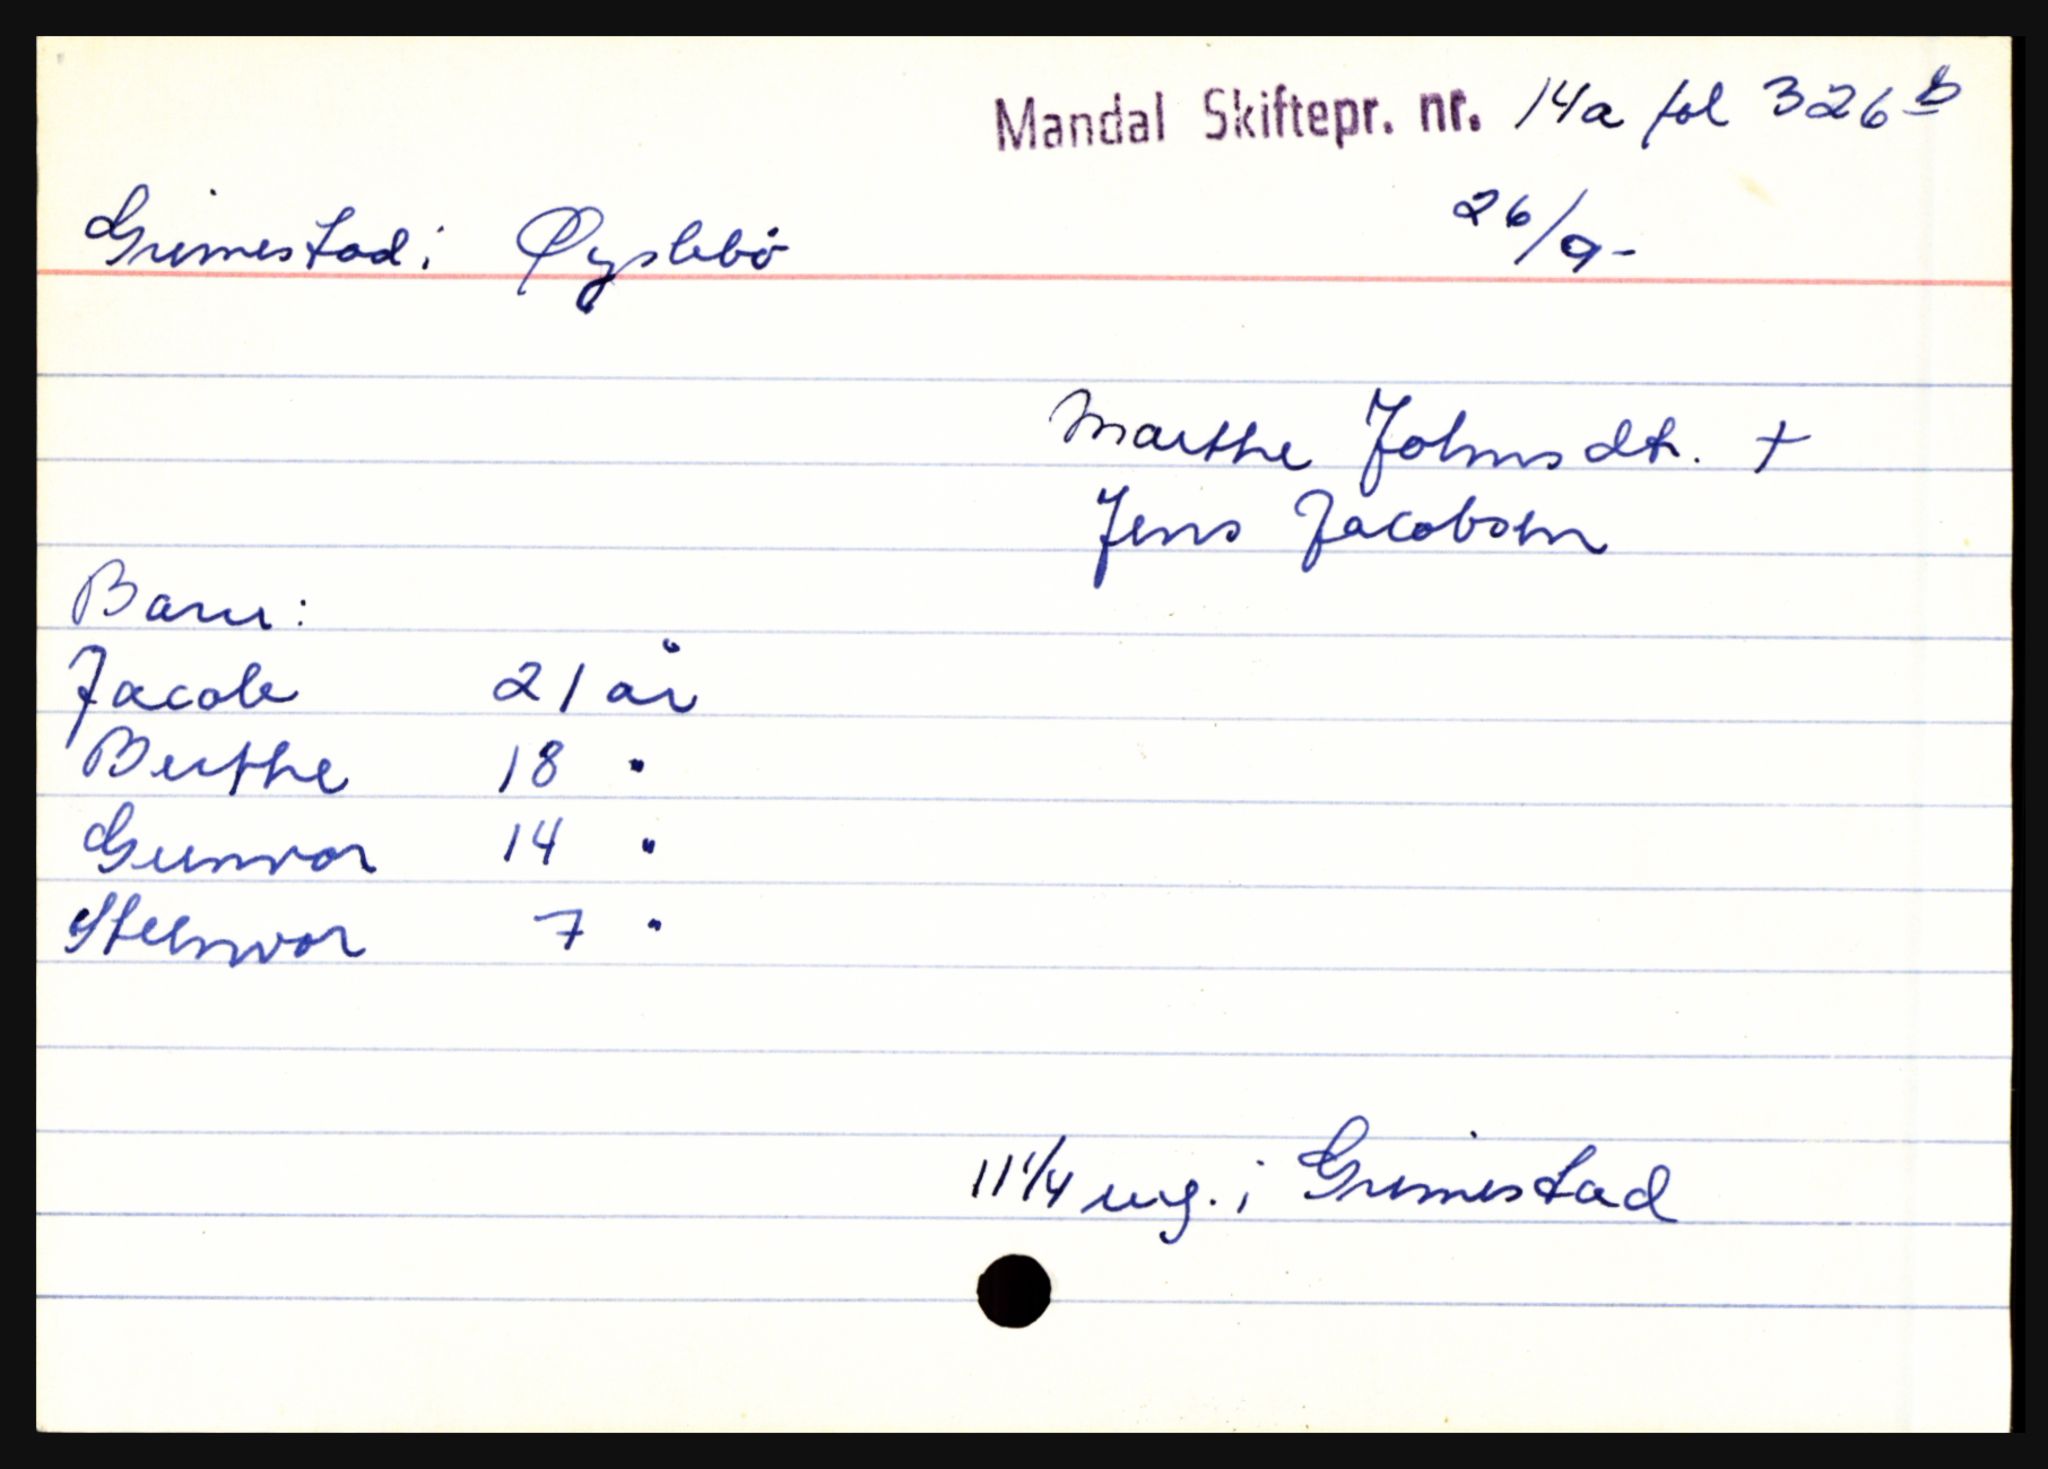 Mandal Skiftepr. nr. 14a fol 326 b
Grimestad i Øyslebø 26/9-
Marthe Johnsdtr. +
Jens Jacobsen
Barn:
Jacob 21 år
Berthe 18 "
Gunvor 14 "
Steinvor 7 "
11 1/4 ung. i Grimestad